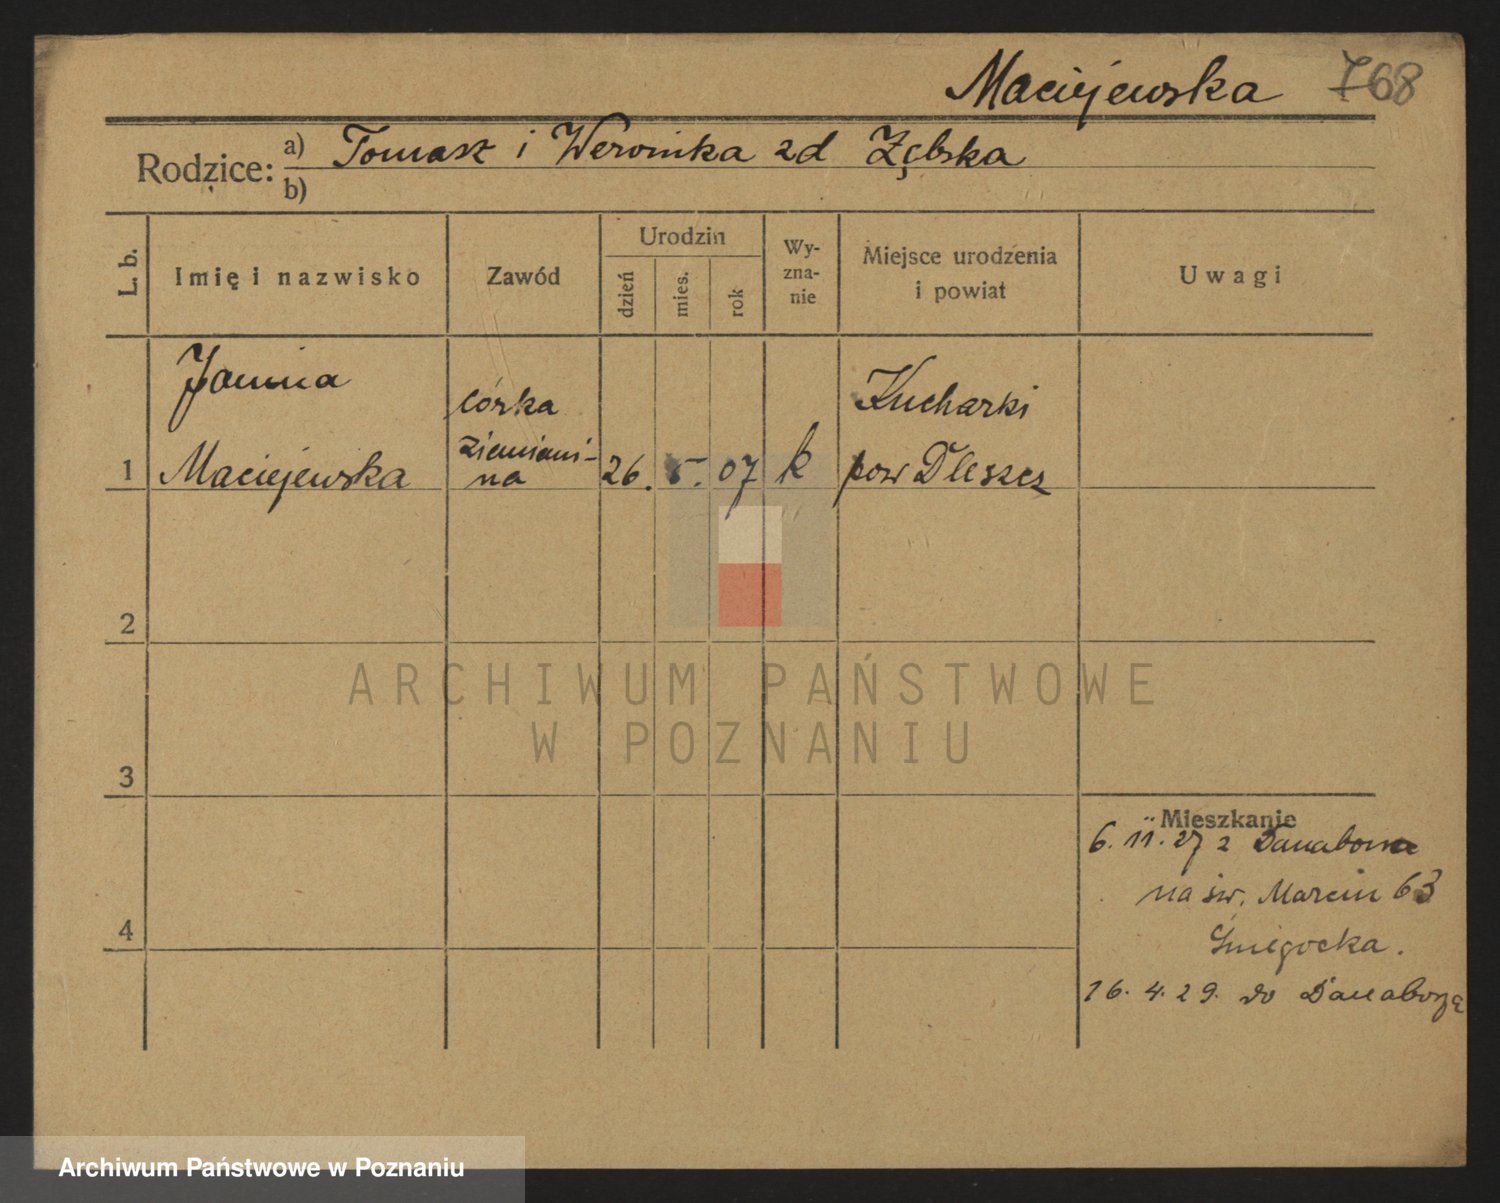 Maciejewska 768
Rodzice: a) Tomasz i Weronika zd Zębska
b)
L. b.
Imię i nazwisko
Zawód
Urodzin
dzień
mies.
rok
Wy-
zna-
nie
Miejsce urodzenia
i powiat
Uwagi
Janina
Maciejewska
córka
ziemiani-
na
1
26. 5. 07
k
Kucharki
pow Pleszez
2
3
4
ARCHIWUM PAŃSTWOWE
W POZNANIU
Mieszkanie
6. 11. 27 z
na św. Marcin 63
Śnigocka.
16. 4. 29. do
Archiwum Państwowe w Poznaniu